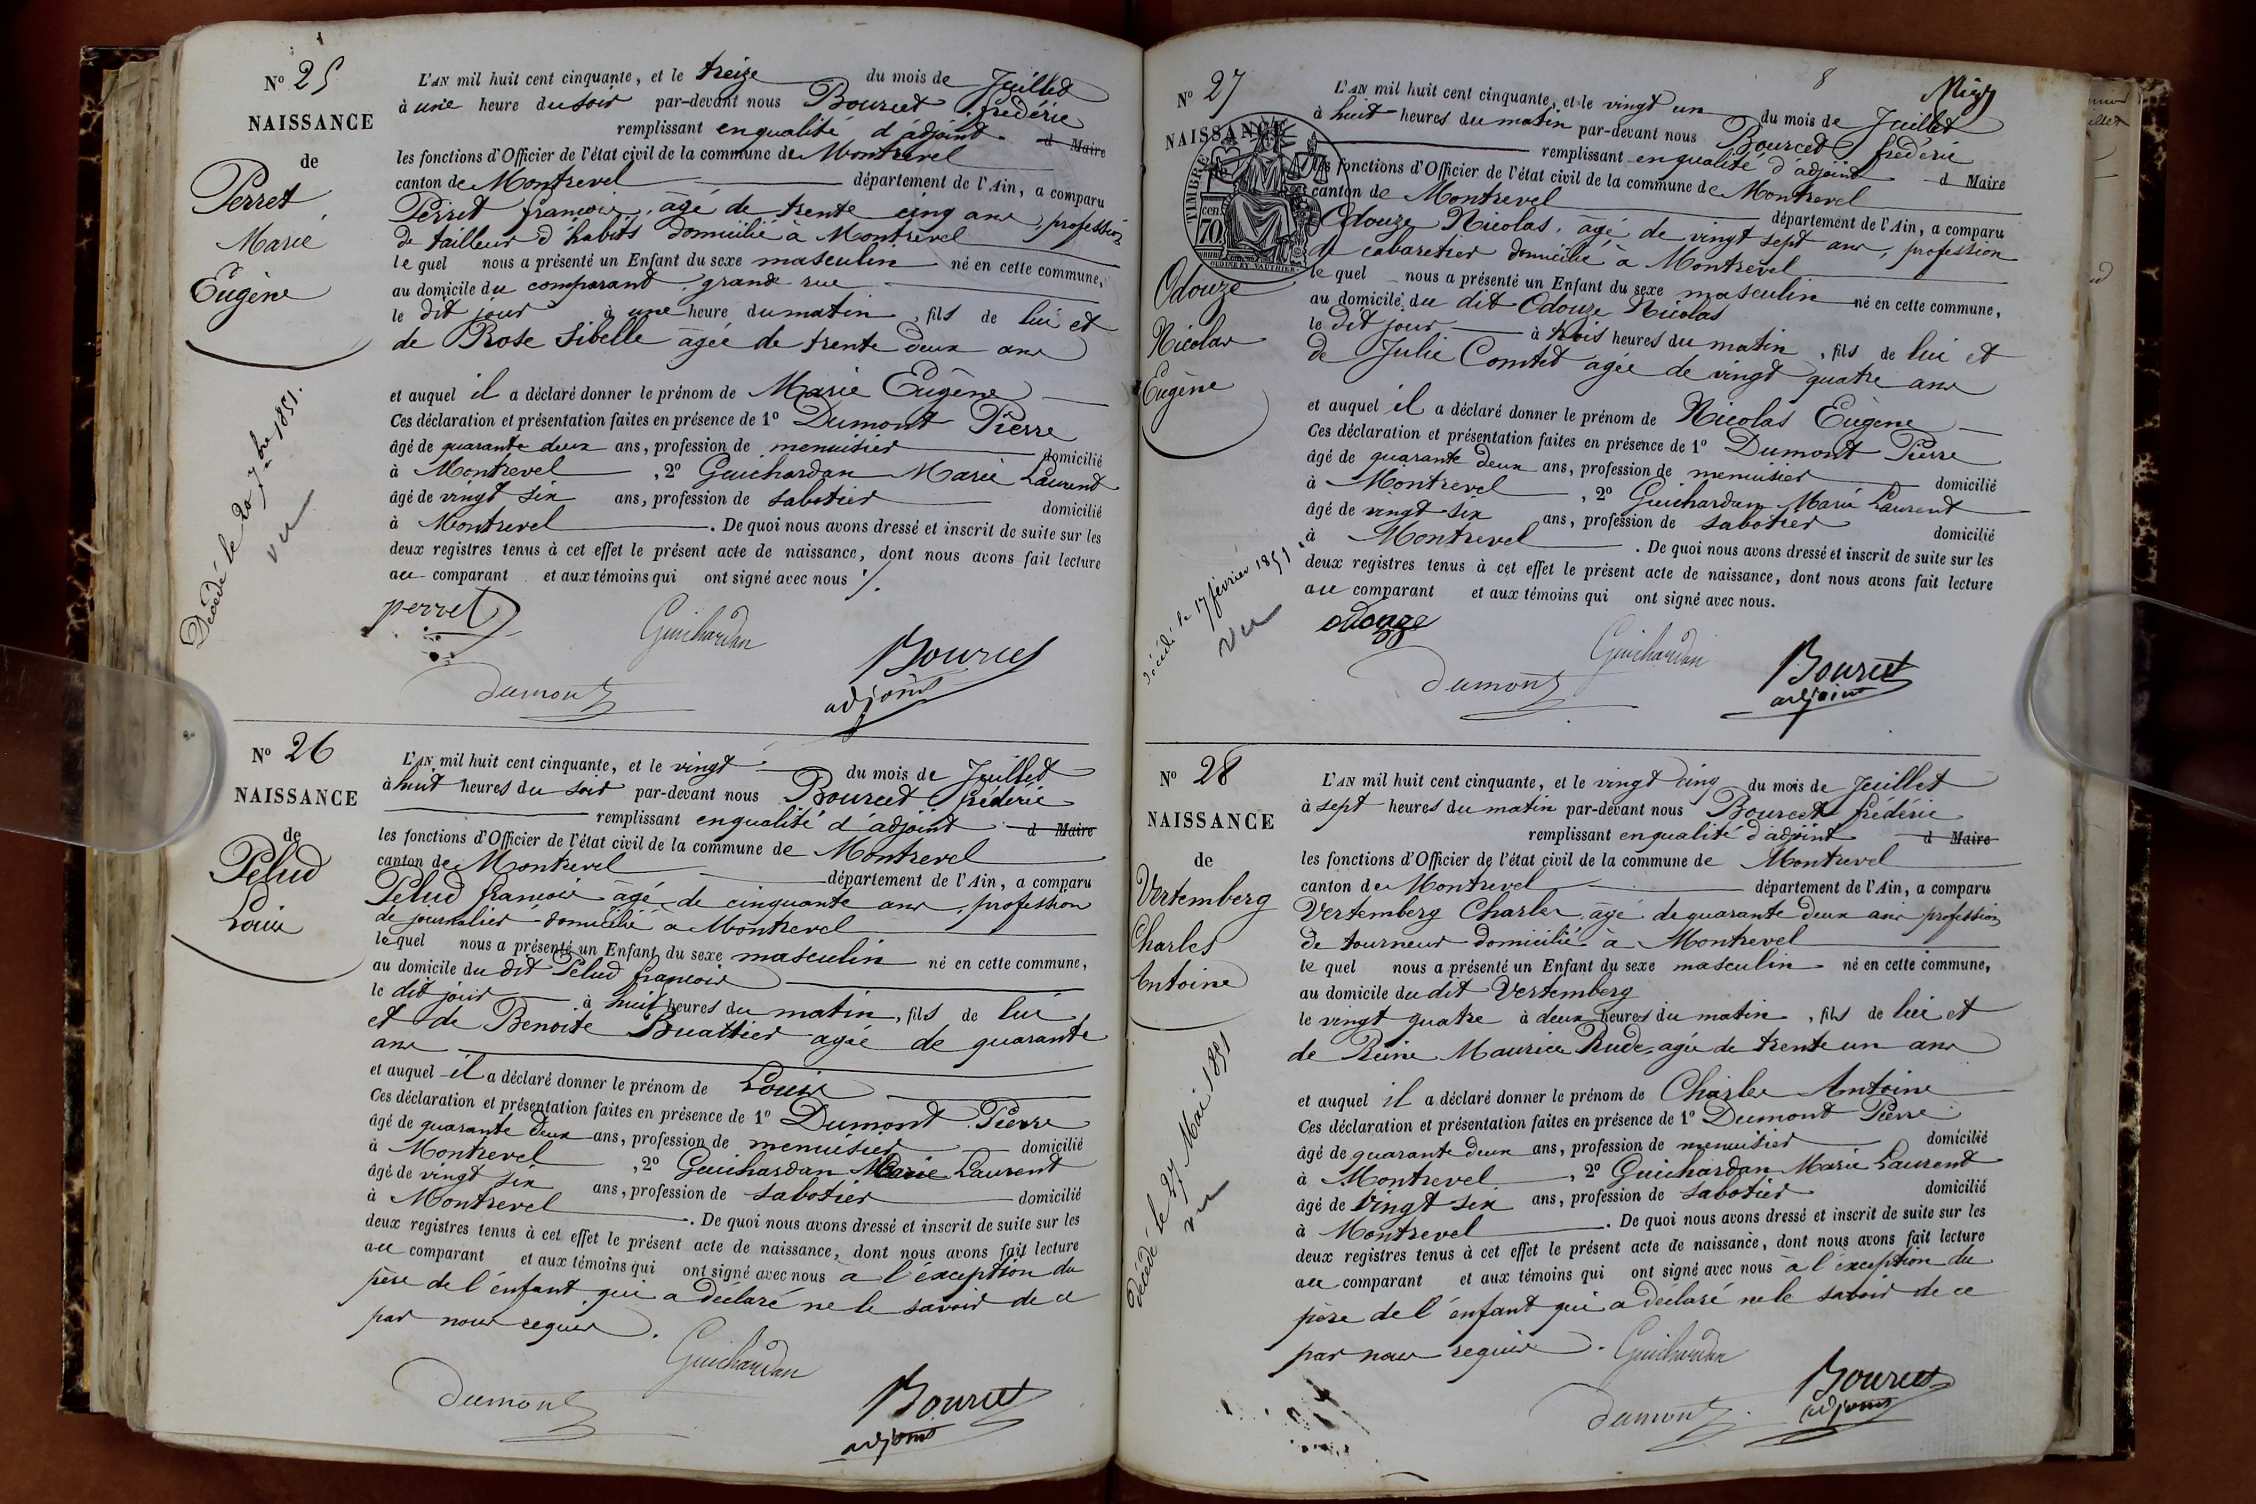 N° 25
NAISSANCE
de
Perret
Marie
Eugène
Décédé le 20 7bre 1851.
vu
L'AN mil huit cent cinquante, et le treize du mois de Juillet
à une heure du soir par-devant nous Bourcet frédéric
remplissant en qualité d'adjoint d Maire
les fonctions d'Officier de l'état civil de la commune de Montrevel
canton de Montrevel département de l'Ain, a comparu
Perret francois, agé de trente cinq ans, profession
de tailleur d'habits domicilié à Montrevel
le quel nous a présenté un Enfant du sexe masculin né en cette commune,
au domicile du comparant, grande rue
le dit jour à une heure du matin, fils de lui et
de Rose Sibelle agée de trente deux ans
et auquel il a déclaré donner le prénom de Marie Eugène
Ces déclaration et présentation faites en présence de 1° Dumont Pierre
âgé de quarante deux ans, profession de menuisier domicilié
à Montrevel, 2° Guichardan Marie Laurent
âgé de vingt six ans, profession de sabotier domicilié
à Montrevel. De quoi nous avons dressé et inscrit de suite sur les
deux registres tenus à cet effet le présent acte de naissance, dont nous avons fait lecture
au comparant et aux témoins qui ont signé avec nous ./.
perret
Guichardan
Bourcet
adjoint
Dumont
N° 26
NAISSANCE
de
Pelud
Louis
L'AN mil huit cent cinquante, et le vingt du mois de Juillet
à huit heures du soir par-devant nous Bourcet frédéric
remplissant en qualité d'adjoint d Maire
les fonctions d'Officier de l'état civil de la commune de Montrevel
canton de Montrevel département de l'Ain, a comparu
Pelud francois agé de cinquante ans, profession
de journalier domicilié à Montrevel
le quel nous a présenté un Enfant du sexe masculin né en cette commune,
au domicile du dit Pelud francois
le dit jour à huit heures du matin, fils de lui
et de Benoite Buattier agée de quarante
ans
et auquel il a déclaré donner le prénom de Louis
Ces déclaration et présentation faites en présence de 1° Dumont Pierre
âgé de quarante deux ans, profession de menuisier domicilié
à Montrevel, 2° Guichardan Marie Laurent
âgé de vingt six ans, profession de sabotier domicilié
à Montrevel. De quoi nous avons dressé et inscrit de suite sur les
deux registres tenus à cet effet le présent acte de naissance, dont nous avons fait lecture
au comparant et aux témoins qui ont signé avec nous à l'exception du
père de l'enfant qui a déclaré ne le savoir de ce
par nous requis.
Guichardan
Dumont
Bourcet
adjoint
8
N° 27
NAISSANCE
TIMBRE
cen.
70
OUDINE ET VAUTHIER
Odouze
Nicolas
Eugène
Décédé le 17 février 1851.
vu
L'AN mil huit cent cinquante, et le vingt un du mois de Juillet
à huit heures du matin par-devant nous Bourcet frédéric
remplissant en qualité d'adjoint d Maire
les fonctions d'Officier de l'état civil de la commune de Montrevel
canton de Montrevel département de l'Ain, a comparu
Odouze Nicolas, agé de vingt sept ans, profession
de cabaretier domicilié à Montrevel
le quel nous a présenté un Enfant du sexe masculin né en cette commune,
au domicile du dit Odouze Nicolas
le dit jour à trois heures du matin, fils de lui et
de Julie Comtet agée de vingt quatre ans
et auquel il a déclaré donner le prénom de Nicolas Eugène
Ces déclaration et présentation faites en présence de 1° Dumont Pierre
âgé de quarante deux ans, profession de menuisier domicilié
à Montrevel, 2° Guichardan Marie Laurent
âgé de vingt six ans, profession de sabotier domicilié
à Montrevel. De quoi nous avons dressé et inscrit de suite sur les
deux registres tenus à cet effet le présent acte de naissance, dont nous avons fait lecture
au comparant et aux témoins qui ont signé avec nous.
odouze
Guichardan
Dumont
Bourcet
adjoint
N° 28
NAISSANCE
de
Vertemberg
Charles
Antoine
Décédé le 27 Mai 1851
vu
L'AN mil huit cent cinquante, et le vingt cinq du mois de Juillet
à sept heures du matin par-devant nous Bourcet frédéric
remplissant en qualité d'adjoint d Maire
les fonctions d'Officier de l'état civil de la commune de Montrevel
canton de Montrevel département de l'Ain, a comparu
Vertemberg Charles, agé de quarante deux ans profession
de tourneur domicilié à Montrevel
le quel nous a présenté un Enfant du sexe masculin né en cette commune,
au domicile du dit Vertemberg
le vingt quatre à deux heures du matin, fils de lui et
de Reine Maurice Rude, agée de trente un ans
et auquel il a déclaré donner le prénom de Charles Antoine
Ces déclaration et présentation faites en présence de 1° Dumont Pierre
âgé de quarante deux ans, profession de menuisier domicilié
à Montrevel, 2° Guichardan Marie Laurent
âgé de vingt six ans, profession de sabotier domicilié
à Montrevel. De quoi nous avons dressé et inscrit de suite sur les
deux registres tenus à cet effet le présent acte de naissance, dont nous avons fait lecture
au comparant et aux témoins qui ont signé avec nous à l'exception du
père de l'enfant qui a déclaré ne le savoir de ce
par nous requis.
Guichardan
Dumont
Bourcet
adjoint